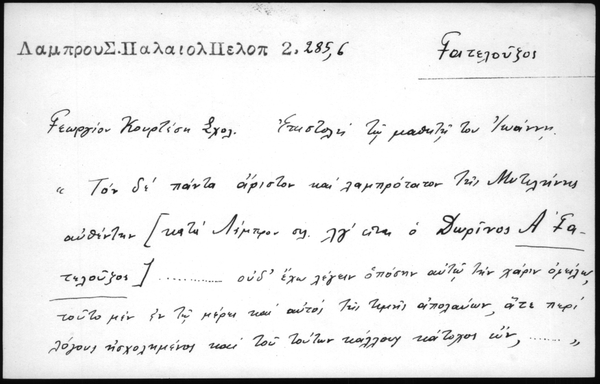 ΛαμπρουΣ.ΠαλαιολΠελοπ 2. 285,6
Γατελοῦζος
Γεωργίου Κουρτέση Σχολ. Ἐπιστολὴ τῷ μαθητῇ του Ἰωάννῃ.
" Τὸν δὲ πάντα ἄριστον καὶ λαμπρότατον τῆς Μυτιλήνης
αὐθέντην [κατὰ Λάμπρον σελ. λγ' εἶναι ὁ Δωρῖνος Α' Γα-
τελοῦζος] ............ οὐδ' ἔχω λέγειν ὁπόσην αὐτῷ τὴν χάριν ὀφείλω,
τοῦτο μὲν ἐν τῷ μέρει καὶ αὐτὸς τῆς τιμῆς ἀπολαύων, ἅτε περὶ
λόγους ἠσχολημένος καὶ τοῦ τούτων κάλλους κάτοχος ὤν, ........ "